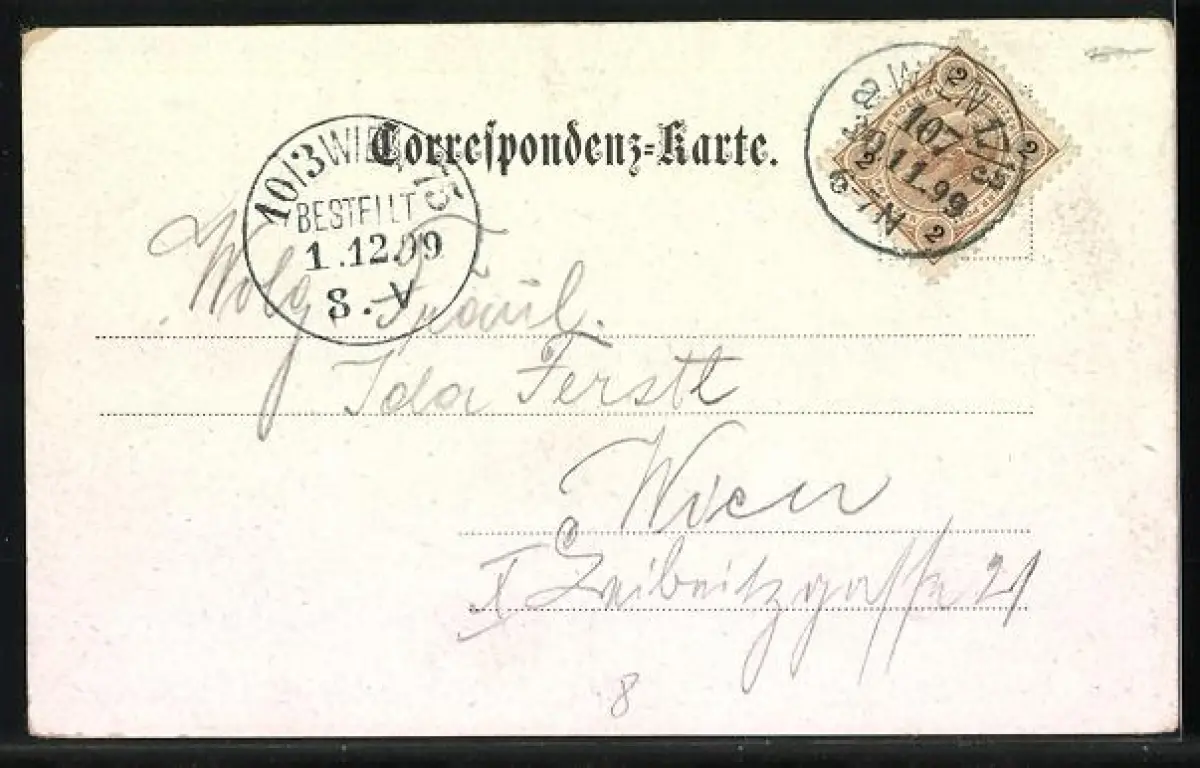 Correspondenz-Karte.
WIEN 17/3
107
30.11.99
6-7N
2
2
2
2
10/3 WIEN 75
BESTELLT
1.12.99
8.V
Wolg. Fräul.
Ida Ferstl
Wien
X Leibnitzgasse 21
8